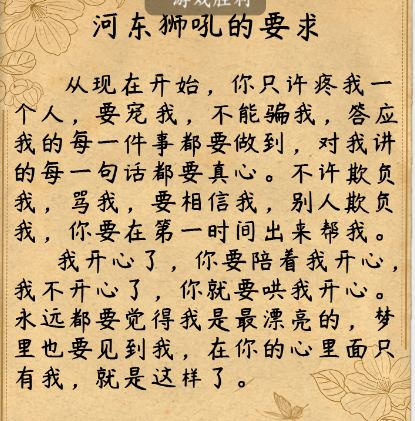 游戏胜利
河东狮吼的要求
从现在开始，你只许疼我一
个人，要宠我，不能骗我，答应
我的每一件事都要做到，对我讲
的每一句话都要真心。不许欺负
我，骂我，要相信我，别人欺负
我，你要在第一时间出来帮我。
我开心了，你要陪着我开心，
我不开心了，你就要哄我开心。
永远都要觉得我是最漂亮的，梦
里也要见到我，在你的心里面只
有我，就是这样了。